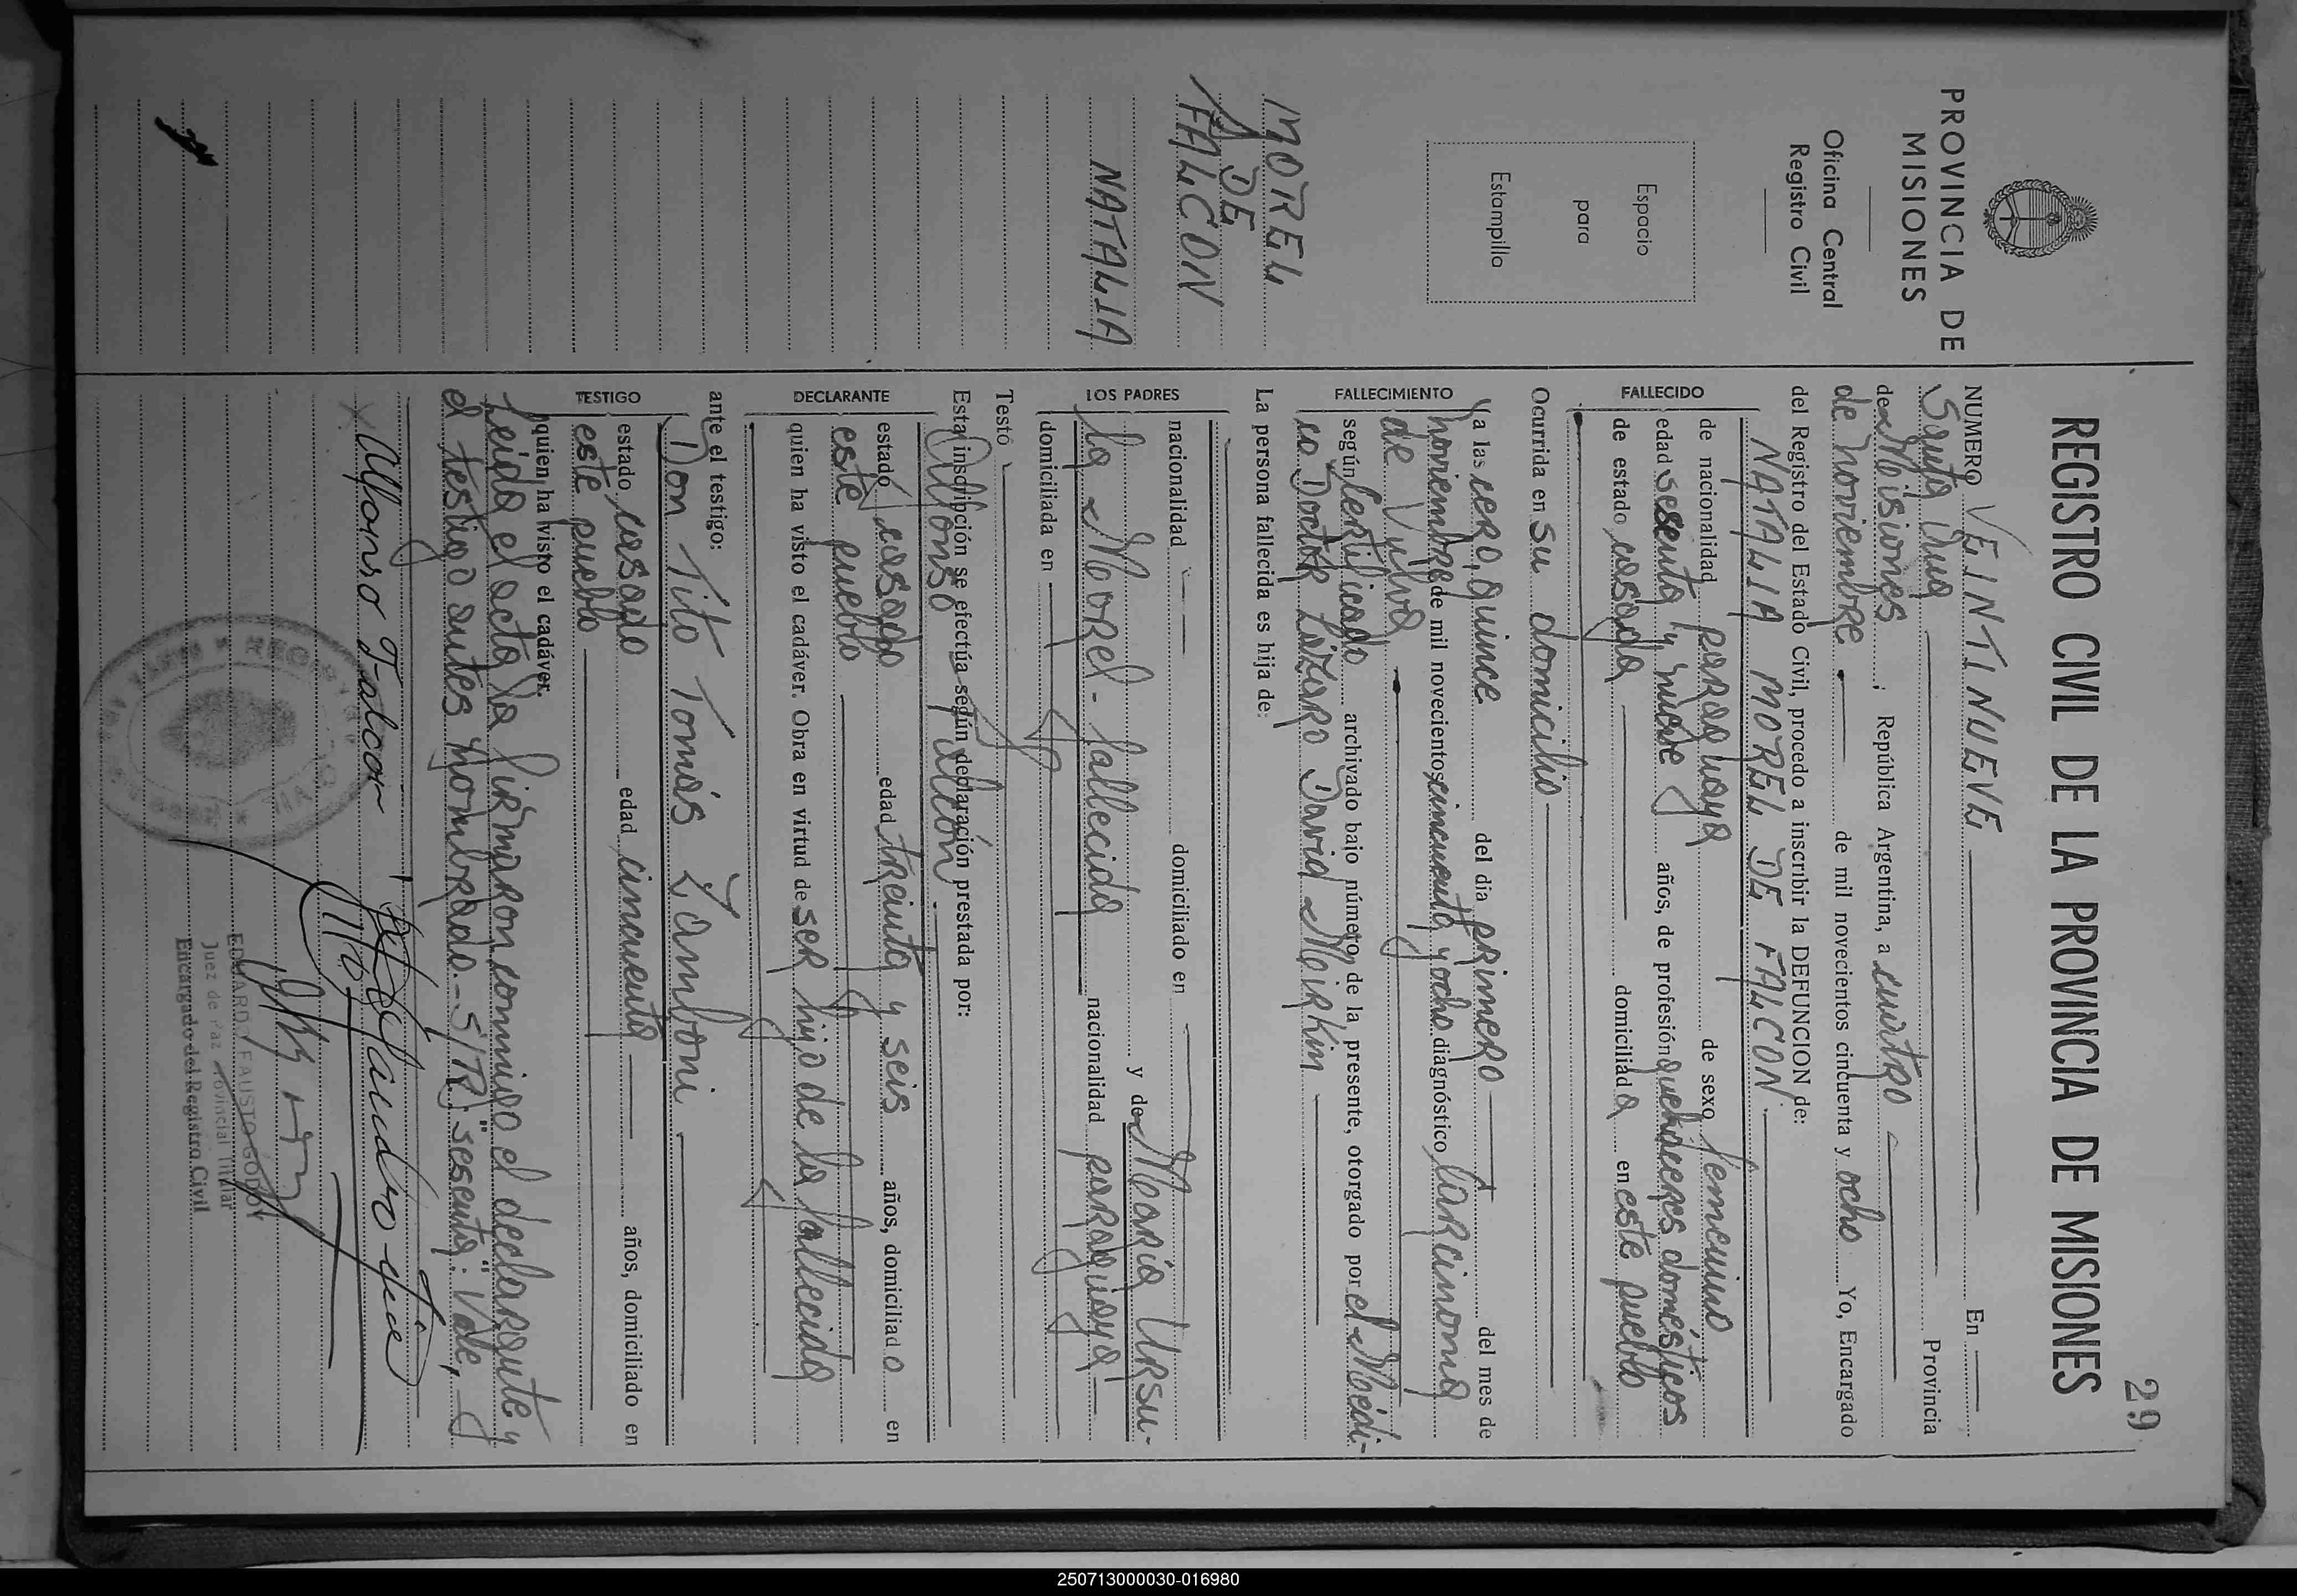 29
REGISTRO CIVIL DE LA PROVINCIA DE MISIONES
PROVINCIA DE
MISIONES
Oficina Central
Registro Civil
Espacio
para
Estampilla
MOREL
DE
FALCON
NATALIA
NUMERO VEINTINUEVE En
Santa Ana Provincia
de Misiones, República Argentina, a cuatro
de noviembre de mil novecientos cincuenta y ocho Yo, Encargado
del Registro del Estado Civil, procedo a inscribir la DEFUNCION de:
NATALIA MOREL DE FALCON
FALLECIDO
de nacionalidad paraguaya de sexo femenino
edad sesenta y nueve años, de profesión quehaceres domésticos
de estado casada domiciliada en este pueblo
Ocurrida en su domicilio
FALLECIMIENTO
a las cero, quince del dia primero del mes de
noviembre de mil novecientos cincuenta y ocho diagnóstico Carcinoma
de Vulva
según certificado archivado bajo número de la presente, otorgado por el Médi-
co Doctor Lázaro David Meirkin
La persona fallecida es hija de:
LOS PADRES
nacionalidad domiciliado en
y de María Ursu-
la Morel - fallecida nacionalidad paraguaya -
domiciliada en
Testó
Esta inscripción se efectúa según declaración prestada por:
Alfonso Falcón
DECLARANTE
estado casado edad treinta y seis años, domiciliado en
este pueblo
quien ha visto el cadáver. Obra en virtud de ser hijo de la fallecida
ante el testigo:
Don Tito Tomás Zamboni
TESTIGO
estado casado edad cincuenta años, domiciliado en
este pueblo
quien ha visto el cadáver.
Leida el acta la firmaron conmigo el declarante y
el testigo antes nombrado.- S/R: "sesenta": Vale.
X Alfonso Falcon
EDUARDO FAUSTO GODOY
Juez de Paz Provincial Titular
Encargado del Registro Civil
250713000030-016980